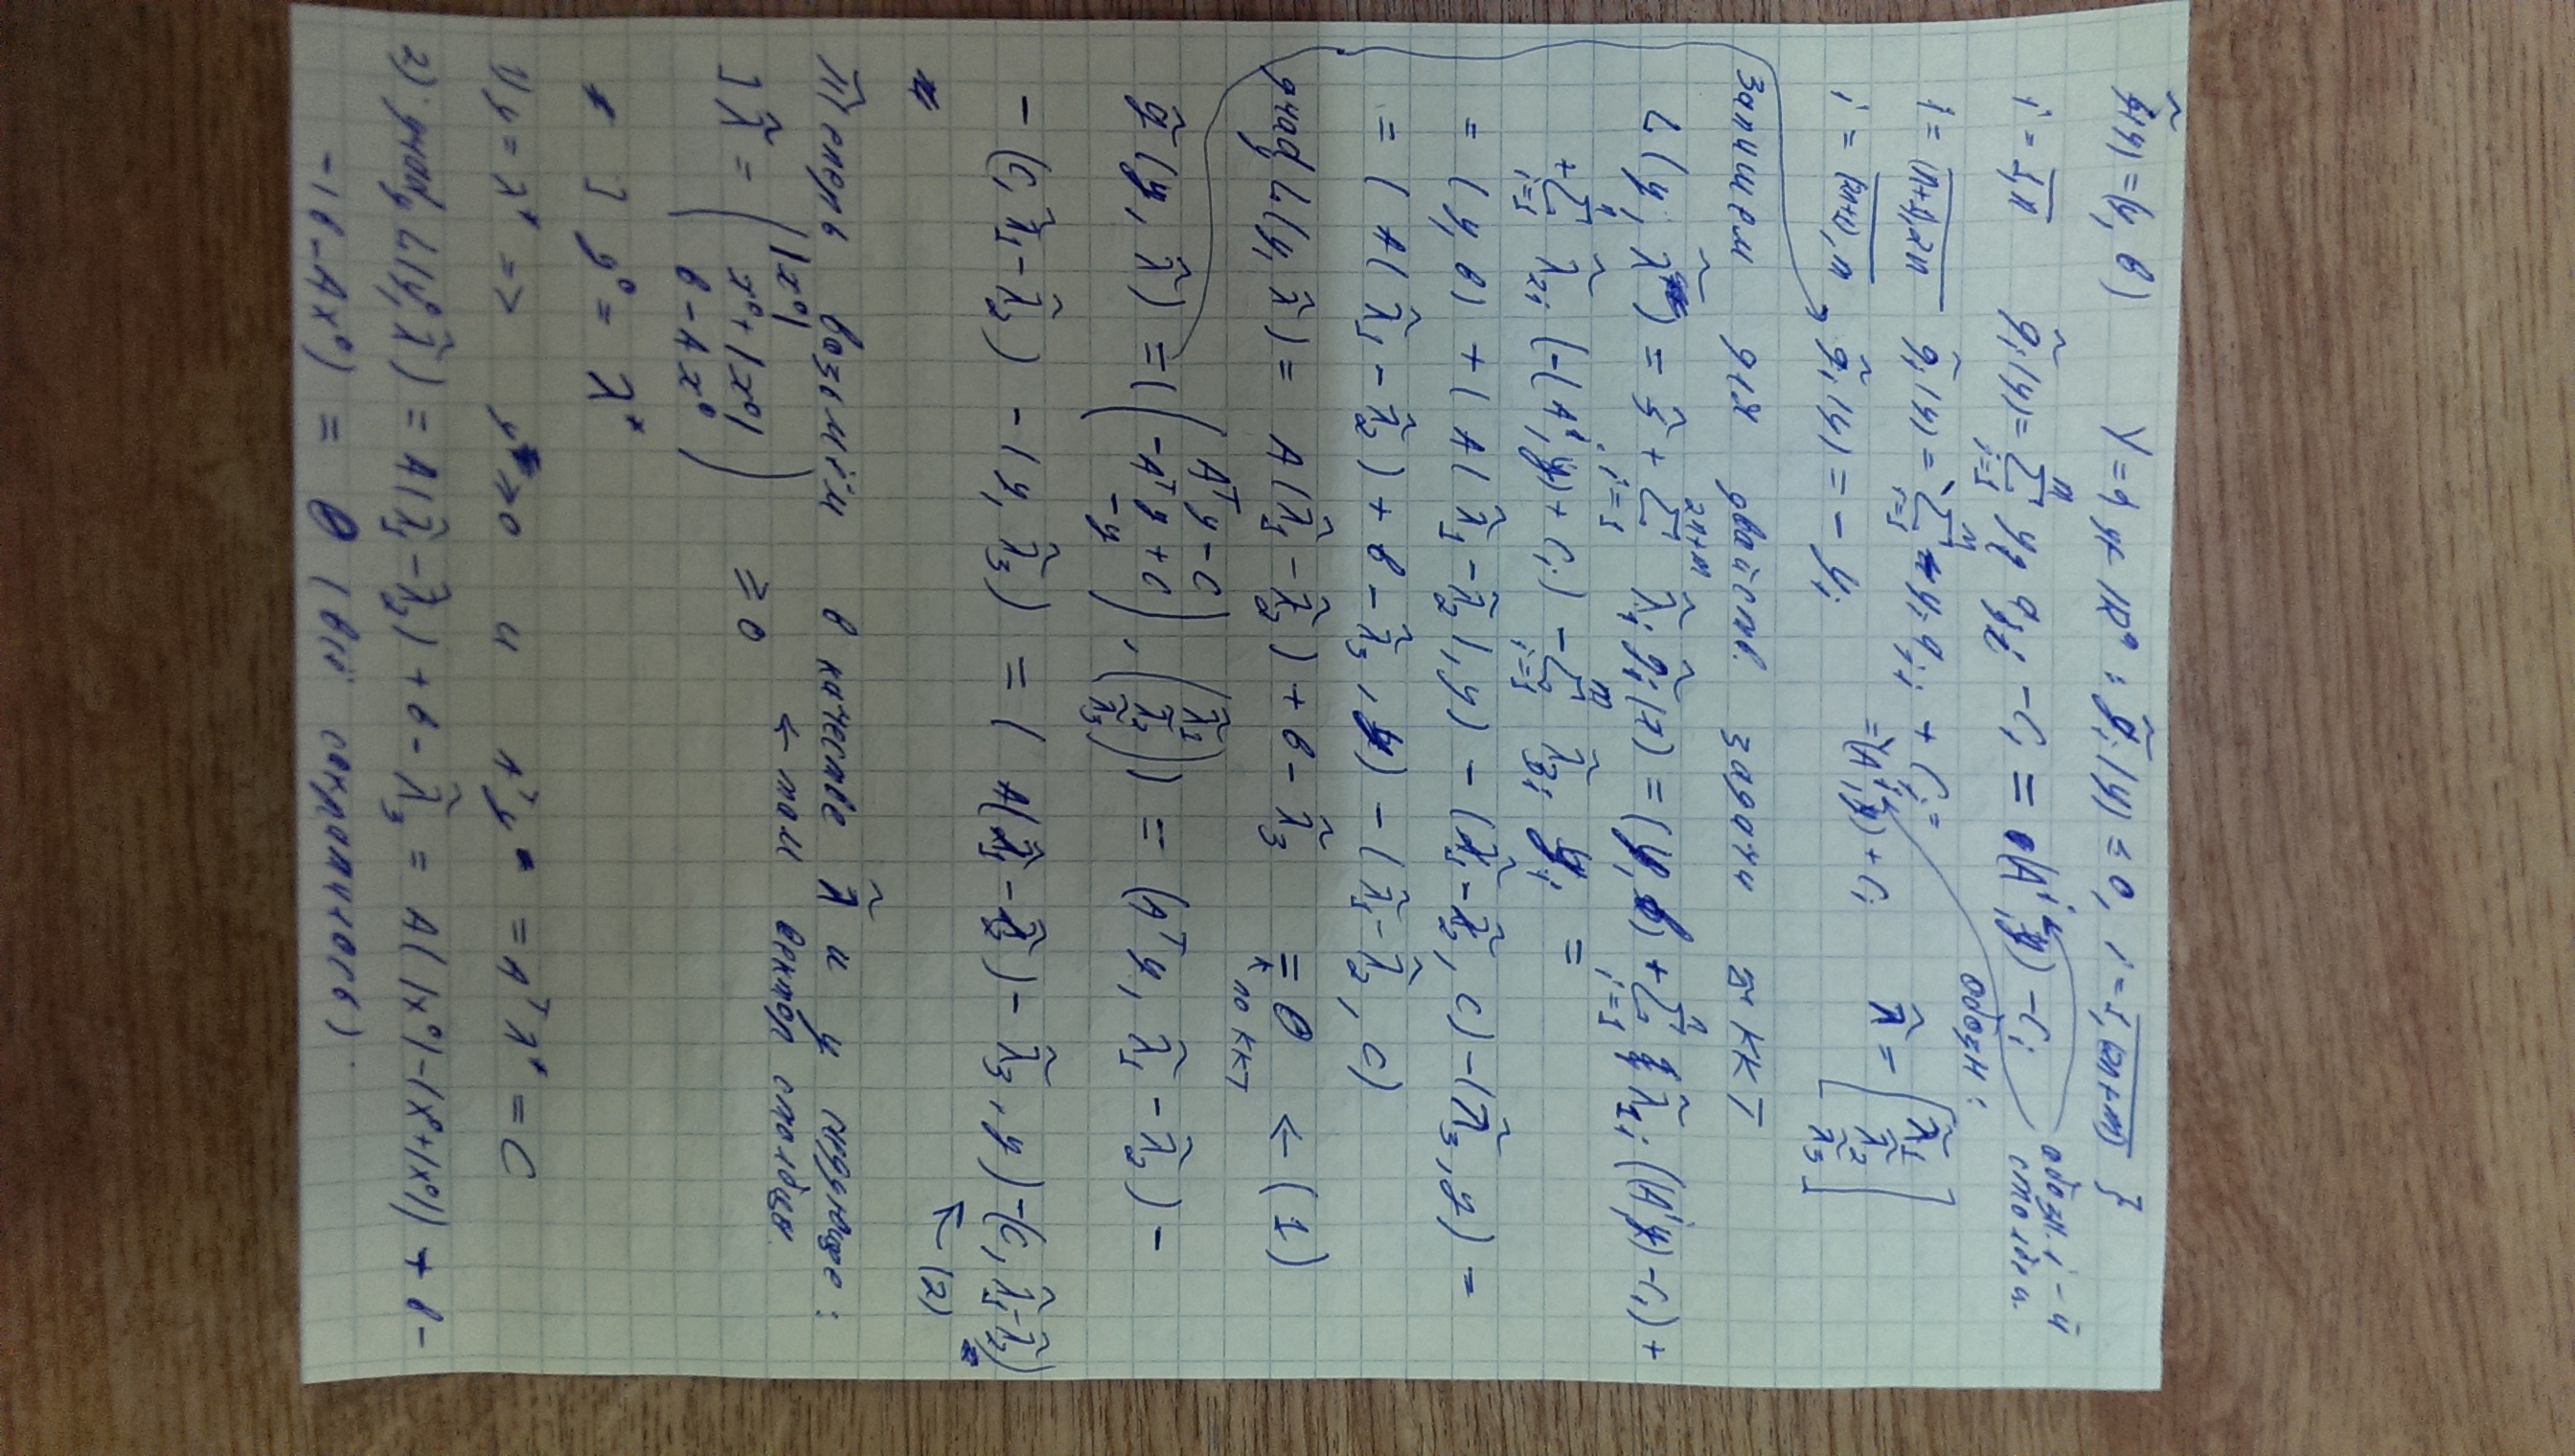 f̃(y) = (y, b) Y = { y ∈ ℝᵐ : g̃ᵢ(y) ≤ 0, i = 1,(2n+m) }
i = 1,n g̃ᵢ(y) = Σ yⱼ aⱼᵢ - cᵢ = (Aⁱ, y) - cᵢ
обозн. i-й столбец
i = (n+1),2n g̃ᵢ(y) = Σ -yⱼ aⱼᵢ + cᵢ = -(Aⁱ, y) + cᵢ
обозн:
i = (2n+1), m g̃ᵢ(y) = - yᵢ
λ̃ = [ λ̃₁ λ̃₂ λ̃₃ ]
Запишем для двойств. задачи ККТ
L(y, λ̃) = f̃ + Σ λ̃ᵢ g̃ᵢ(λ) = (y, b) + Σ λ̃₁ᵢ ((Aⁱ, y) - cᵢ) +
+ Σ λ̃₂ᵢ (-(Aⁱ, y) + cᵢ) - Σ λ̃₃ᵢ yᵢ =
= (y, b) + (A(λ̃₁ - λ̃₂), y) - (λ̃₁ - λ̃₂, c) - (λ̃₃, y) =
= (A(λ̃₁ - λ̃₂) + b - λ̃₃, y) - (λ̃₁ - λ̃₂, c)
grad L(y, λ̃) = A(λ̃₁ - λ̃₂) + b - λ̃₃ = Θ ← (1)
по ККТ
g̃(y, λ̃) = ((Aᵀy - c, -Aᵀy + c, -y), (λ̃₁, λ̃₂, λ̃₃)) = (Aᵀy, λ̃₁ - λ̃₂) -
- (c, λ̃₁ - λ̃₂) - (y, λ̃₃) = (A(λ̃₁ - λ̃₂) - λ̃₃, y) - (c, λ̃₁ - λ̃₂)
← (2)
Теперь возьмём в качестве λ̃ и y следующее :
] λ̃ = ( |x⁰| x⁰ + |x⁰| b - Ax⁰ ) ≥ 0 ← такой вектор столбец.
] y⁰ = λ*
1) y = λ* => y ≥ 0 и Aᵀy = Aᵀλ* = c
2) grad L(y⁰, λ̃) = A(λ̃₁ - λ̃₂) + b - λ̃₃ = A(|x⁰| - (x⁰ + |x⁰|)) + b -
- (b - Ax⁰) = Θ (всё сократилось)